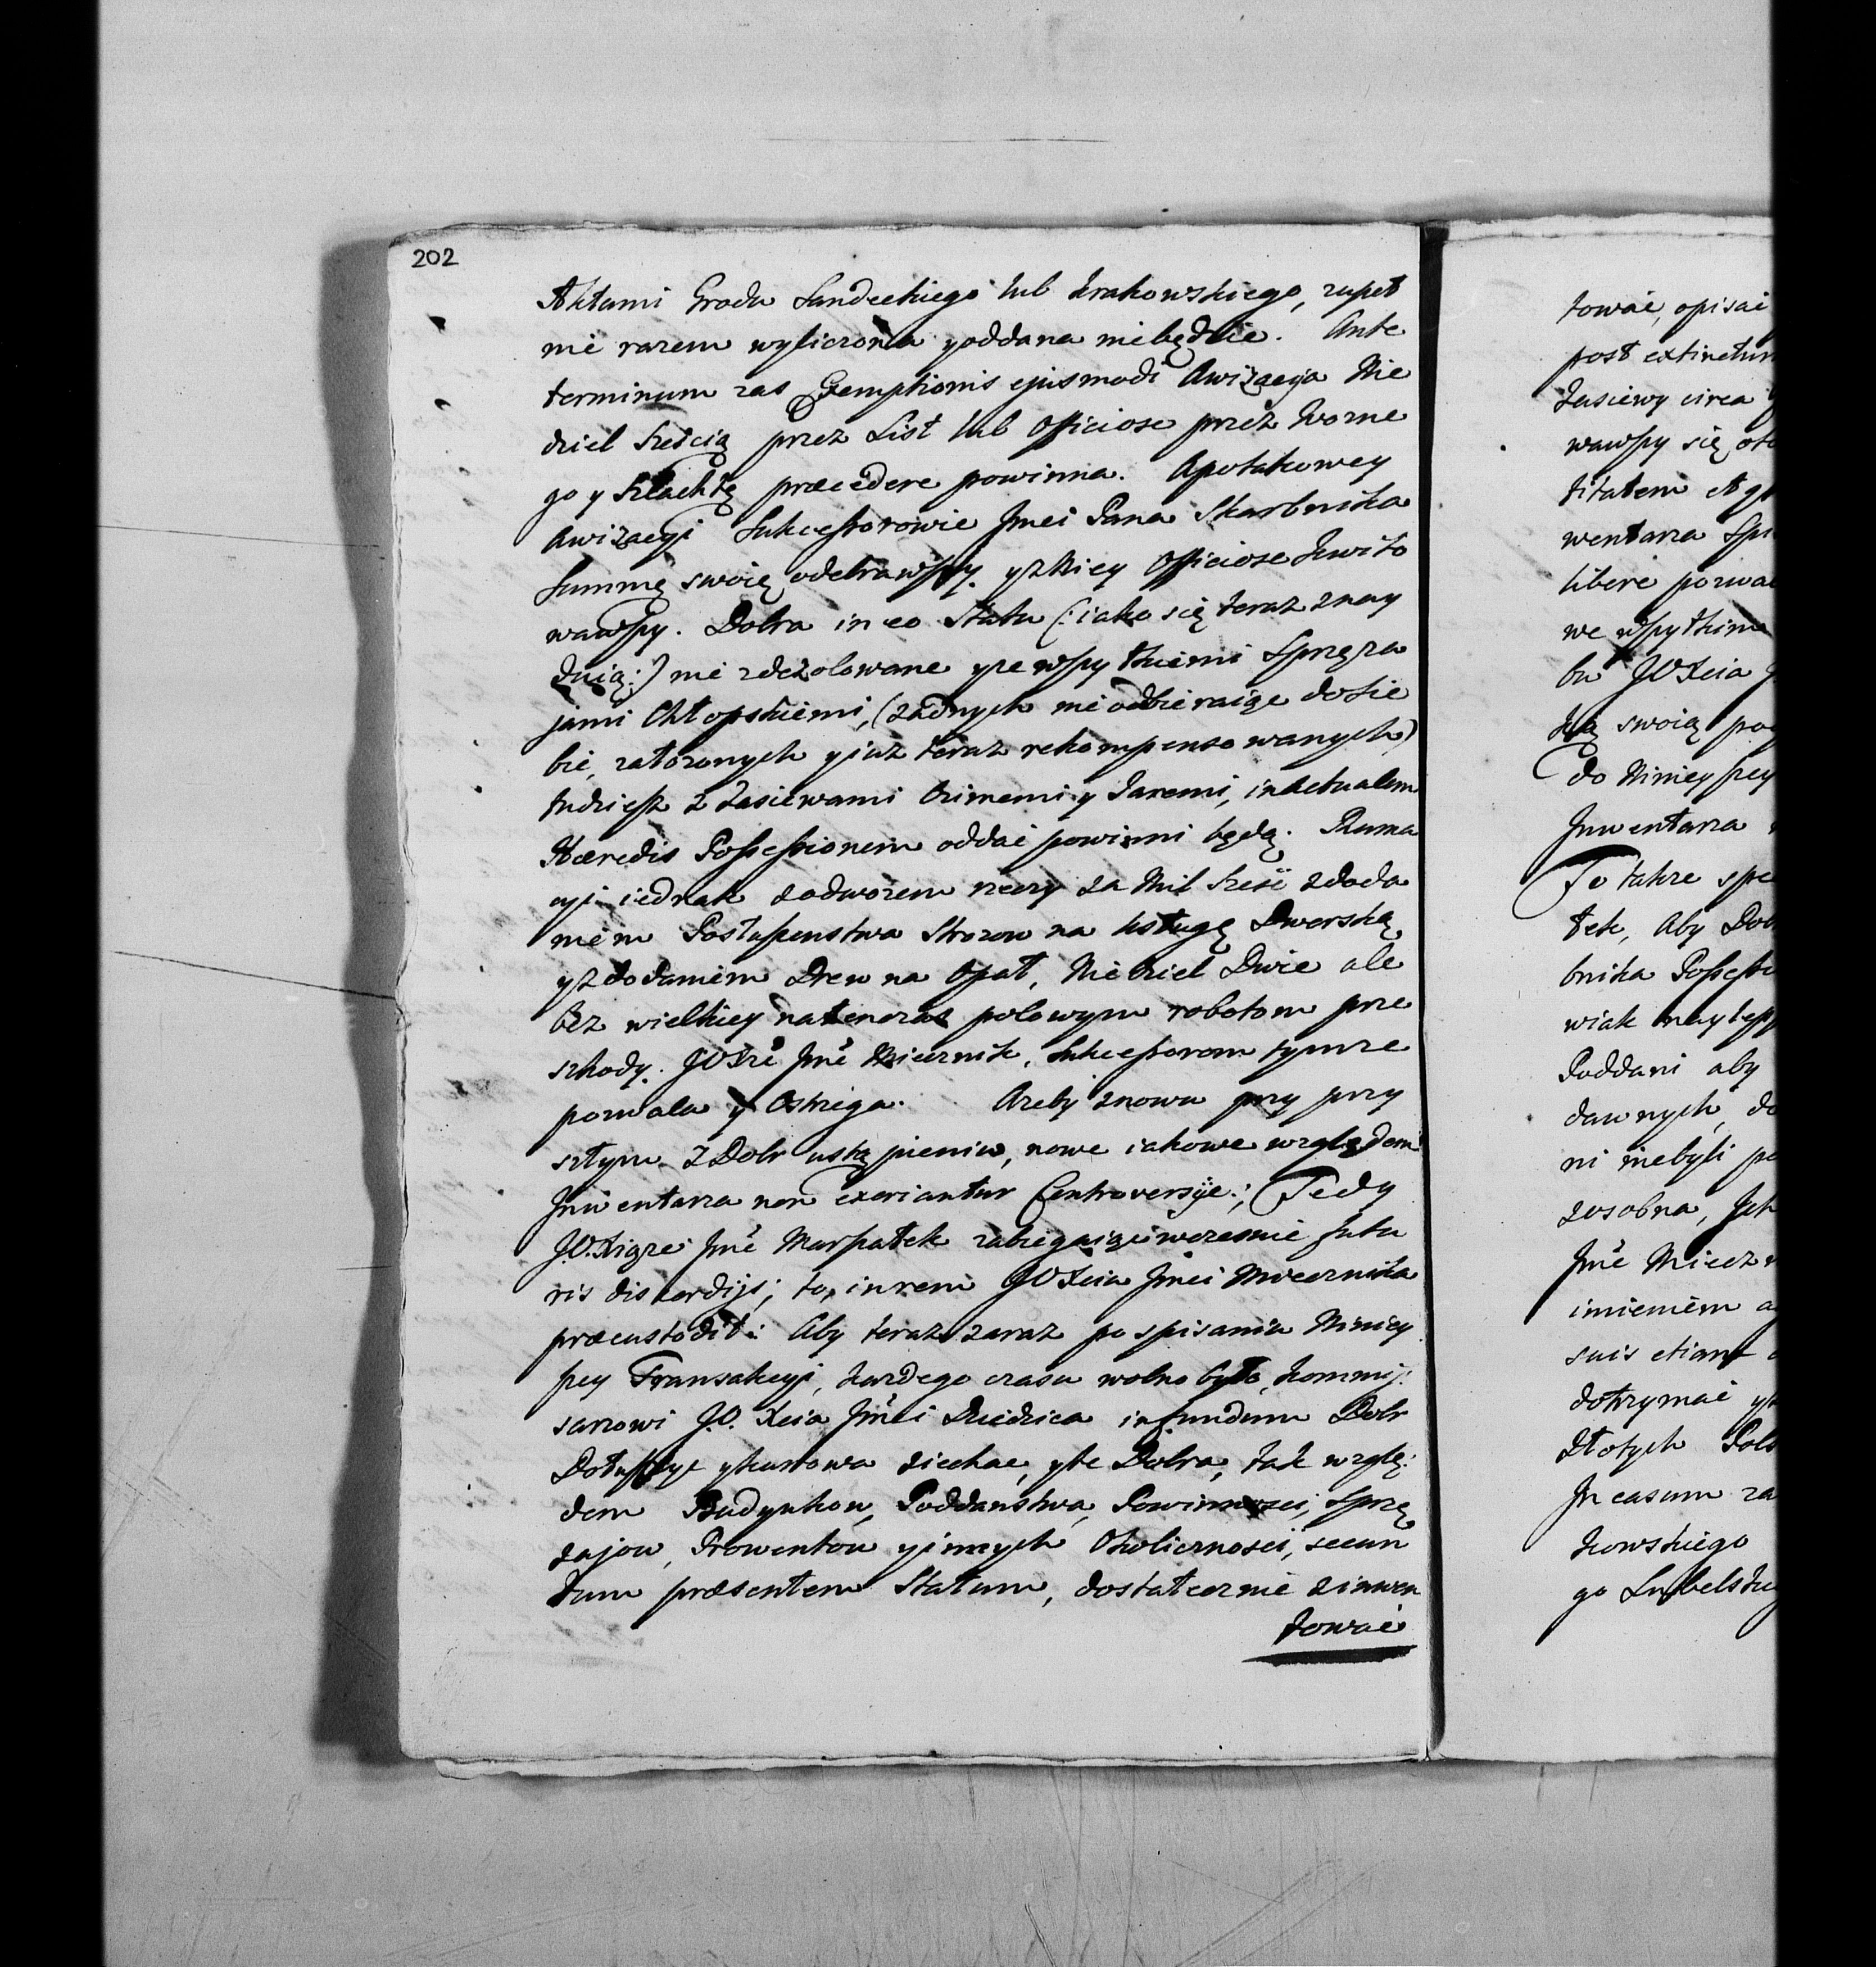 202
Aktami Grodu Sandeckiego lub Krakowskiego, zupeł
nie razem wyliczona y oddana niebędzie. Ante
terminum zas Exemptionis ejusmodi Awizacya Nie
dziel Sześcią przez List lub Officiose przez Wozne
go y Szlachtę præcedere powinna. Apotakowey
Awizacyi Sukcessorowie Jmci Pana Skarbnika
Summę swoię odebrawszy, y z Niey Officiose kwito
wawszy. Dobra in eo Statu (: iako się teraz znay
duią:) nie zdezolowane y ze wszytkiemi Sprzęza
jami Chłopskiemi, (zadnych nie odbieraiąc dosie
bie, załozonych y iuz teraz rekompensowanych)
tudziesz z Zasiewami Ozimemi y Jaremi, in actualem
Hæredis Possessionem oddać powinni będą. Ruma
cyi iednak zodworem rzeczy za Mil Sześć z doda
niem Postuszenstwa Strozow na Usługę Dworską,
y z dodaniem Drew na Opał, Niedziel Dwie ale
bez wielkiey natenczas polowym robotom prze
szkody. JOXże Jmć Miecznik, Sukcessorom tymze
pozwala y Ostrzega. Azeby znowu przy przy
szłym z Dobr ustąpieniu, nowe iakowe względem
Inwentarza non exoriantur Controversÿe; Tedy
J.O. Xiąze Jmć Marszałek zabiegaiąc wczesnie futu
ris discordÿs; to, in rem JOXcia Jmci Miecznika
præcustodit: Aby teraz zaraz po spisaniu Niniey
szey Transakcyi, kazdego czasu wolno było, Kommis
sarzowi J.O. Xcia Jmci Dziedzica in fundum Dobr
Dotuszyc y Kurowa ziechac, y te Dobra, tak wzglę:
dem Budynkow, Poddanstwa, Powinnosci, Sprzę
zajow, Prowentow y innych Okolicznosci, secun
dum præsentem Statum, dostatecznie zinwen
towac
towac, opisać
post extinctum
Zasiewy circa
wawszy się
titatem et
wentarza
libere pozwa
we wszytkim
bu JOXcia
swoią
do Niniey szey
Inwentarza
To takze
tek, Aby Dob
bnika
wiak naylep
Poddani aby
dawnych,
ni niebyli
zosobna,
Jmć Mieczn
imieniem
suis etiam
dotrzymać
Złotych Pols
In casum
kowskiego
go Lubelski